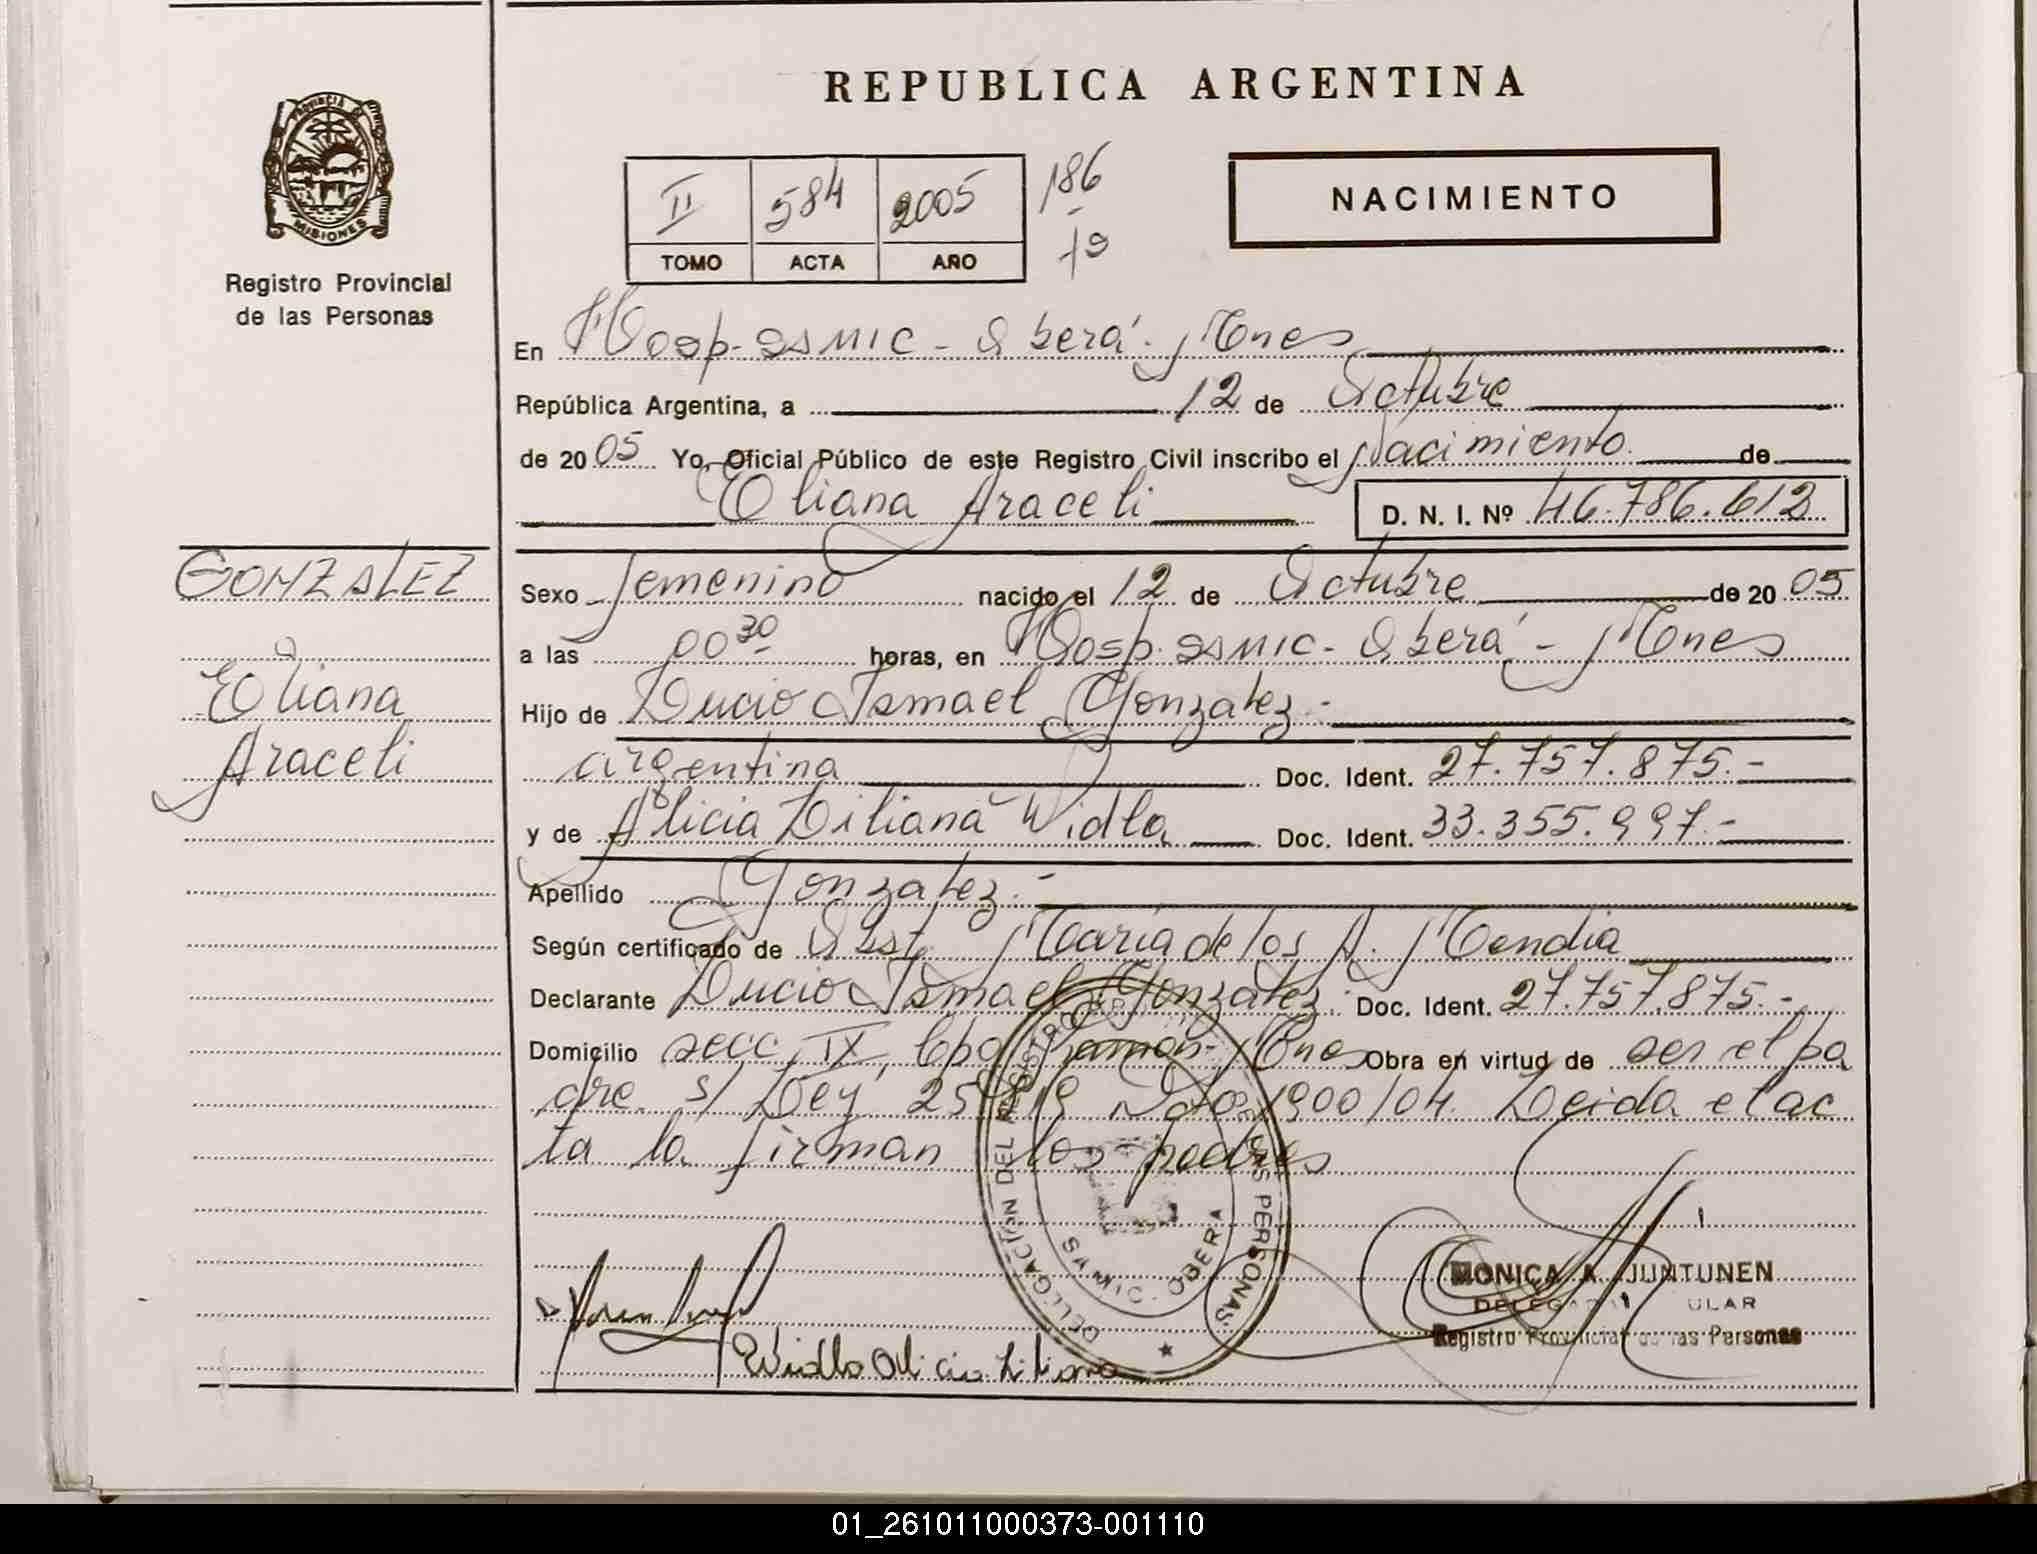 REPUBLICA ARGENTINA
PROVINCIA DE
MISIONES
Registro Provincial
de las Personas
II 584 2005
TOMO ACTA AÑO
186
19
NACIMIENTO
En Hosp. SAMIC - Oberá - Mnes
República Argentina, a 12 de Octubre
de 2005 Yo, Oficial Público de este Registro Civil inscribo el Nacimiento de
Eliana Araceli D. N. I. Nº 46.786.612
GONZALEZ
Eliana
Araceli
Sexo femenino nacido el 12 de Octubre de 2005
a las 00 30 horas, en Hosp. SAMIC - Oberá - Mnes
Hijo de Lucio Ismael Gonzalez.-
argentina Doc. Ident. 27.757.875.-
y de Alicia Liliana Widla Doc. Ident. 33.355.997.-
Apellido Gonzalez.-
Según certificado de Obst. María de los A. Mendia
Declarante Lucio Ismael Gonzalez. Doc. Ident. 27.757.875.-
Domicilio secc. IX, Cpo Ramon - Mnes Obra en virtud de ser el pa
dre s/ Ley 25819 Dto 1900/04. Leida el ac
ta la firman los padres
DELEGACIÓN DEL REGISTRO PROVINCIAL DE LAS PERSONAS
OBERA
Widla Alicia Liliana
MONICA A. JUNTUNEN
DELEGADA TITULAR
Registro Provincial de las Personas
01_261011000373-001110